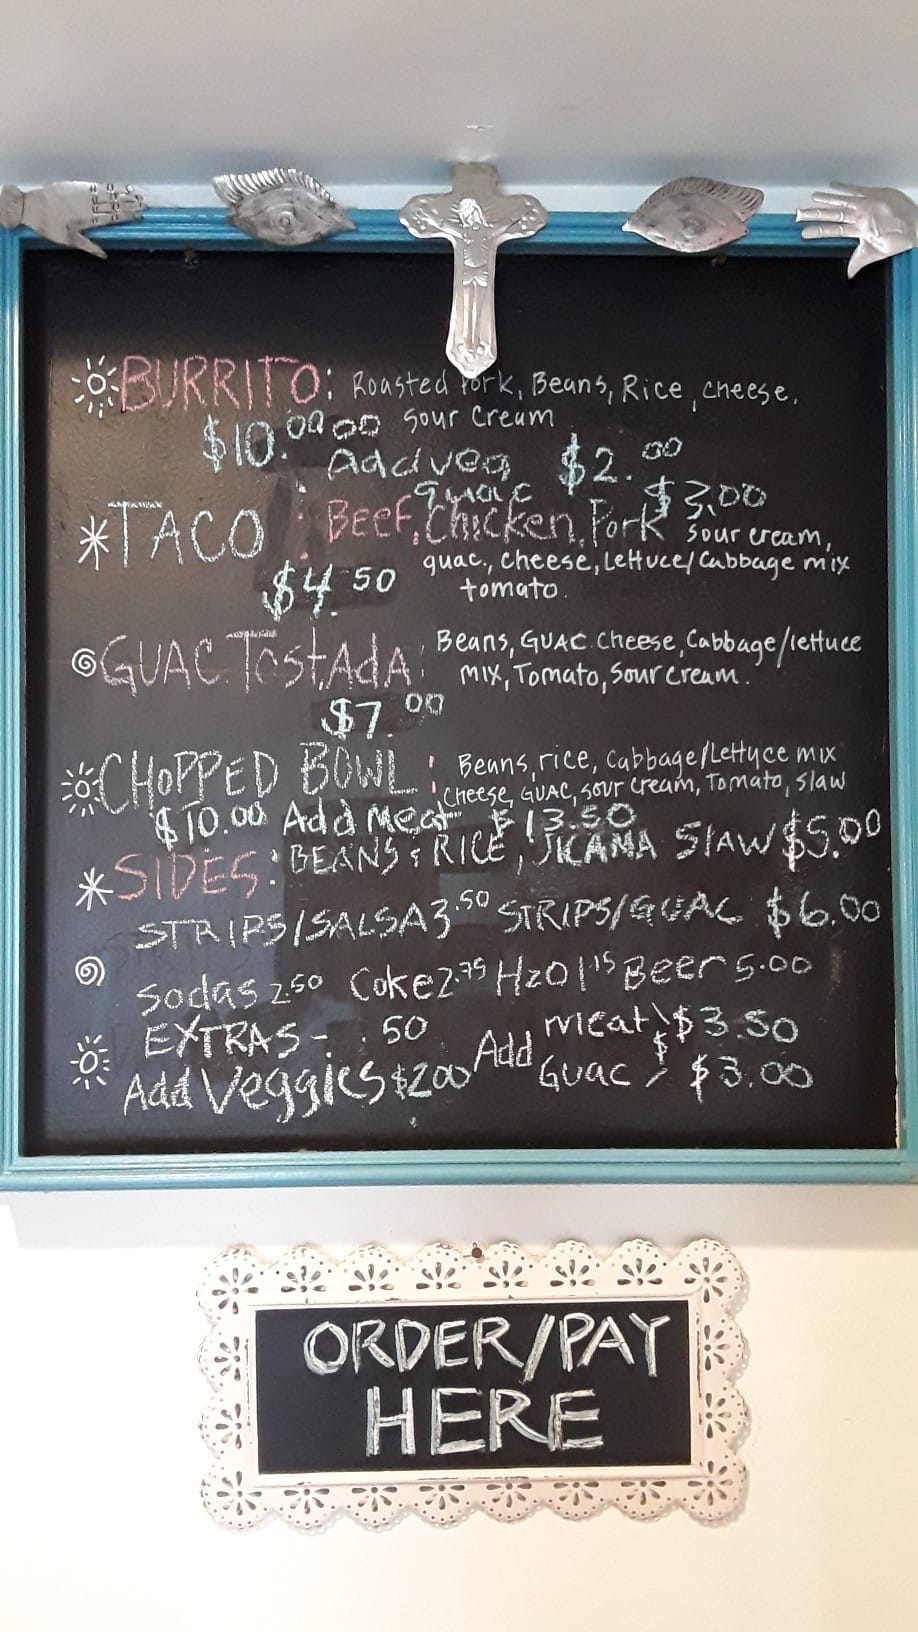 BURRITO: Roasted Pork, Beans, Rice, cheese,
$10.00 00 sour cream
Add veg $2.00
guac $3.00
TACO: Beef, Chicken, Pork sour cream,
guac, cheese, Lettuce/Cabbage mix
$4.50 tomato.
GUAC. TostAdA: Beans, GUAC. Cheese, Cabbage/lettuce
mix, Tomato, Sour Cream.
$7.00
CHOPPED BOWL: Beans, rice, Cabbage/Lettuce mix
Cheese, GUAC, sour cream, Tomato, slaw
$10.00 Add Meat $13.50
SIDES: BEANS & RICE, JICAMA SlAW $5.00
STRIPS/SALSA 3.50 STRIPS/GUAC $6.00
Sodas 2.50 Coke 2.75 H2O 1.15 Beer 5.00
EXTRAS - .50 Add Meat \ $ $3.50
Add Veggies $2.00 Guac / $3.00
ORDER/PAY
HERE